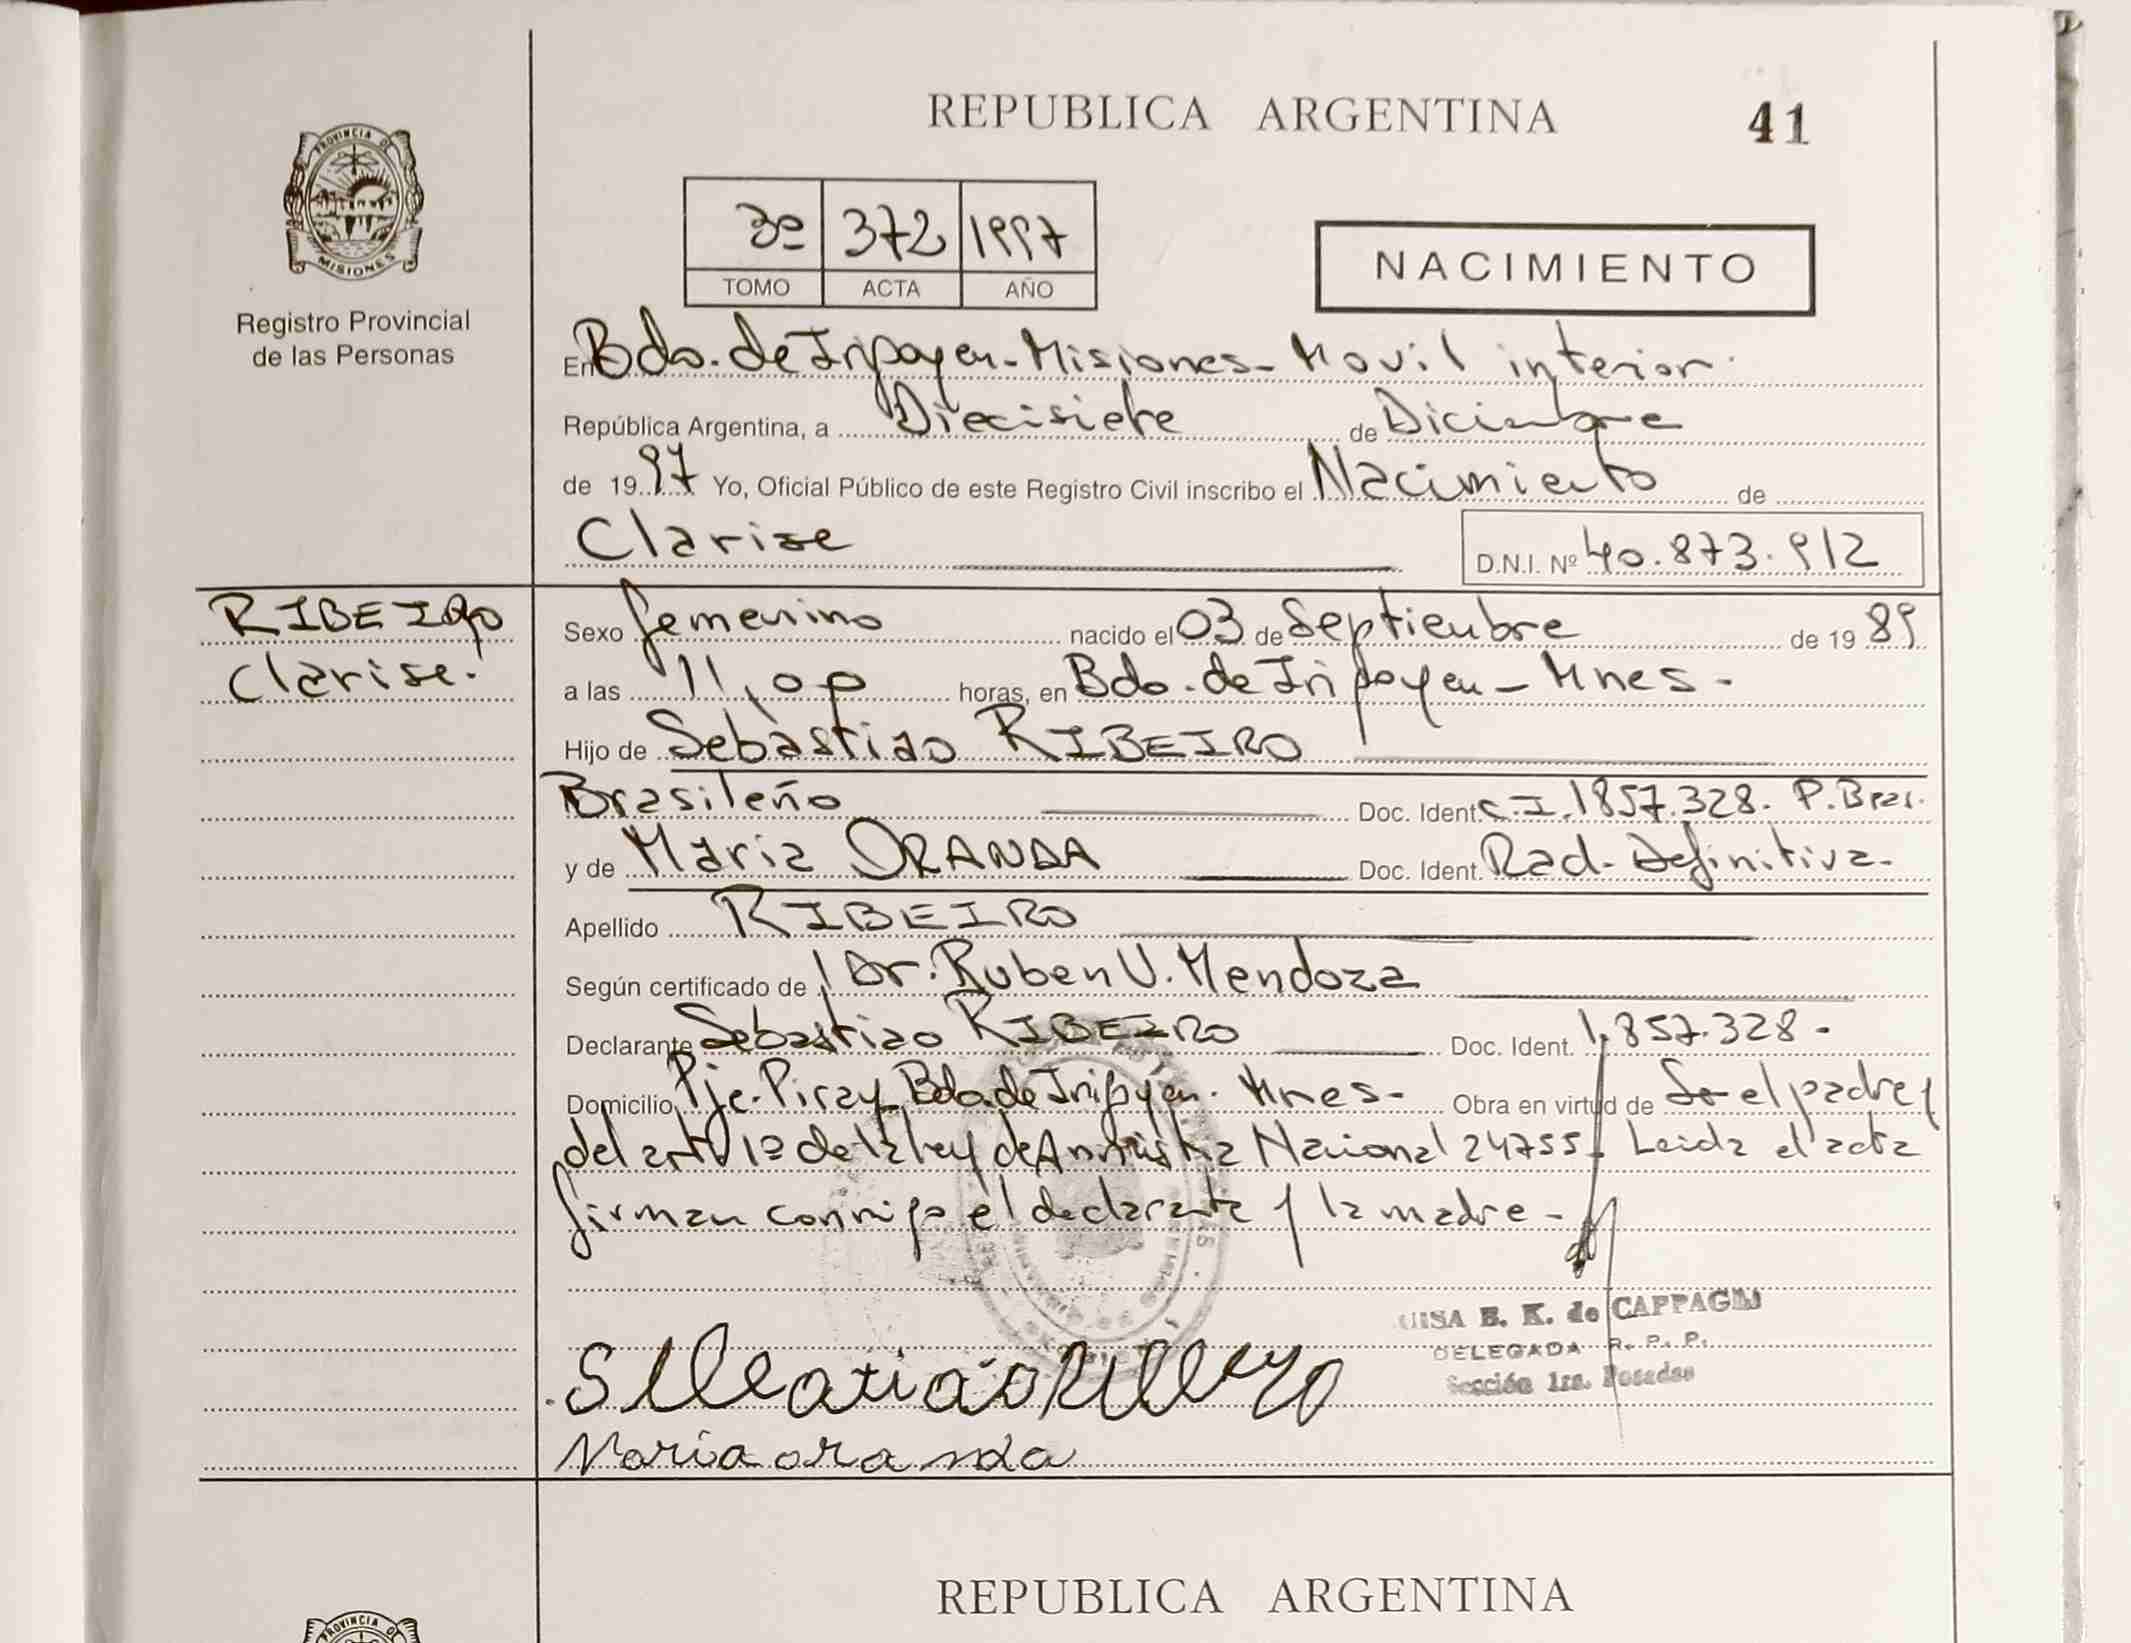 REPUBLICA ARGENTINA
41
PROVINCIA DE
MISIONES
Registro Provincial
de las Personas
3º 372 1997
TOMO ACTA AÑO
NACIMIENTO
En Bdo. de Irigoyen - Misiones - Movil interior
República Argentina, a Diecisiete de Diciembre
de 1997 Yo, Oficial Público de este Registro Civil inscribo el Nacimiento de
Clarise D.N.I. Nº 40.873.912
RIBEIRO
Clarise.
Sexo femenino nacido el 03 de Septiembre de 1989
a las 11,00 horas, en Bdo. de Irigoyen - Mnes -
Hijo de Sebastiao RIBEIRO
Brasileño Doc. Ident. C.I. 1857.328. P. Bras.
y de Maria ORANDA Doc. Ident. Rad. Definitiva -
Apellido RIBEIRO
Según certificado de Dr. Ruben V. Mendoza
Declarante Sebastiao RIBEIRO Doc. Ident. 1.857.328 -
Domicilio Pje. Piray Bdo. de Irigoyen. Mnes - Obra en virtud de Ser el padre y
del art 1º de la ley de Amnistia Nacional 24755 - Leida el acta
firman conmigo el declarante y la madre -
UISA B. K. de CAPPAGLI
DELEGADA R. P. P.
Sección 1ra. Posadas
Sebastiao Ribeiro
Maria oranda
REPUBLICA ARGENTINA
PROVINCIA DE